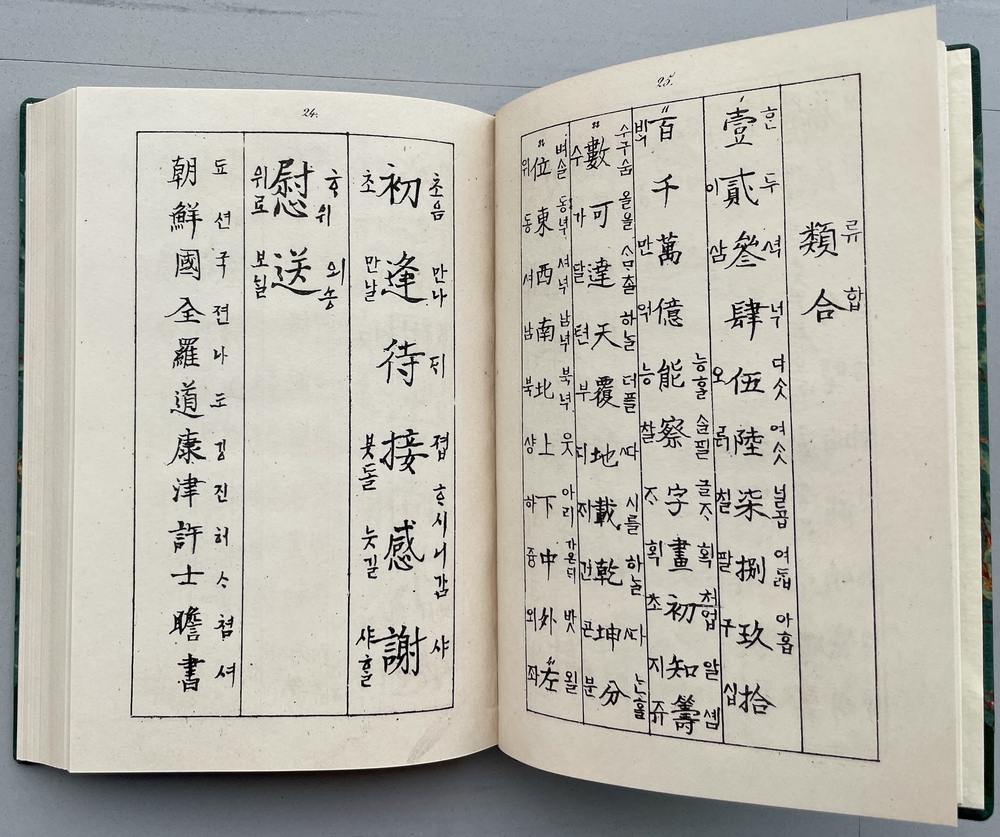 24.
초음 만나 ᄃᆡ 졉 ᄒᆞ시니 감 샤
初逢待接感謝
초 만날 붓돌 늣길 샤ᄒᆞᆯ
ᄒᆞ위 외송
慰送
위로 보닐
됴션국젼나도강진허ᄉᆞ쳠셔
朝鮮國全羅道康津許士瞻書
25.
류합
類合
ᄒᆞᆫ 두 석 넉 다ᄉᆞᆺ 여ᄉᆞᆺ 닐곱 여ᄃᆞᆲ 아홉
壹貳參肆伍陸柒捌玖拾
이 삼 오 륙 칠 팔 구 십
능ᄒᆞᆯ 슬필 글ᄌᆞ 획 처업 알 셈
百千萬億能察字畫初知籌
ᄇᆡᆨ 만 억 능 찰 ᄌᆞ 획 초 지 쥬
올을 ᄉᆞᄆᆞᄎᆞᆯ 하ᄂᆞᆯ 더플 ᄯᅡ 시를 하ᄂᆞᆯ ᄯᅡ 논홀
數可達天覆地載乾坤分
수 가 달 텬 부 디 ᄌᆡ 건 곤 분
벼슬 동녁 셔녁 남녁 북녁 웃 아리 가온ᄃᆡ 밧 욀
位東西南北上下中外左
위 동 셔 남 북 샹 하 즁 외 좌